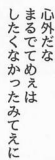 心外だな
まるでてめぇは
したくなかったみてぇに